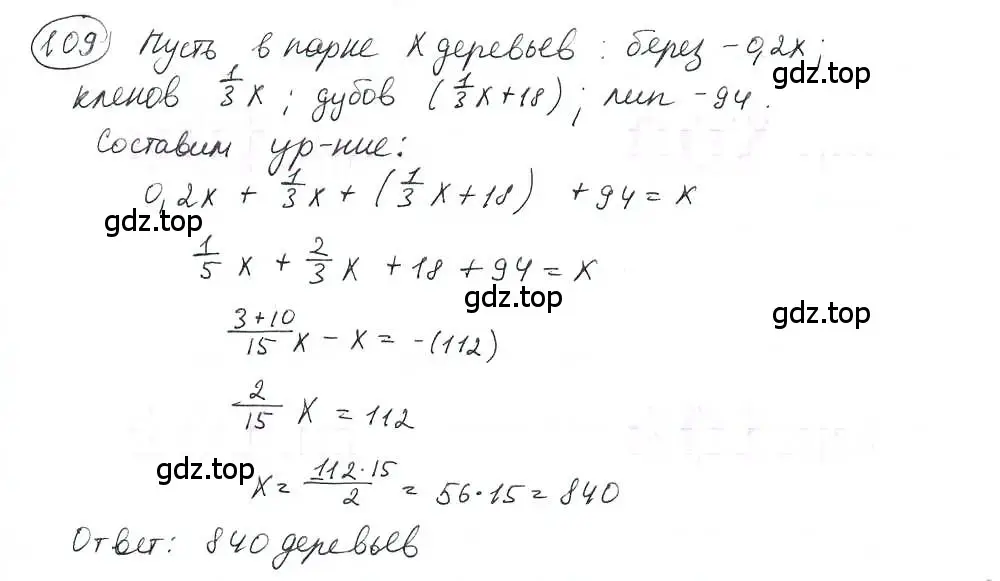 109 Пусть в парке x деревьев : берез – 0,2x;
gdz.top
кленов 1/3 x ; дубов (1/3 x + 18) ; лип – 94.
Составим ур-ние:
0,2x + 1/3 x + (1/3 x + 18) + 94 = x
gdz.top
gdz.top
1/5 x + 2/3 x + 18 + 94 = x
gdz.top
gdz.top
(3+10)/15 x – x = –(112)
2/15 x = 112
gdz.top
x = (112·15)/2 = 56·15 = 840
Ответ: 840 деревьев